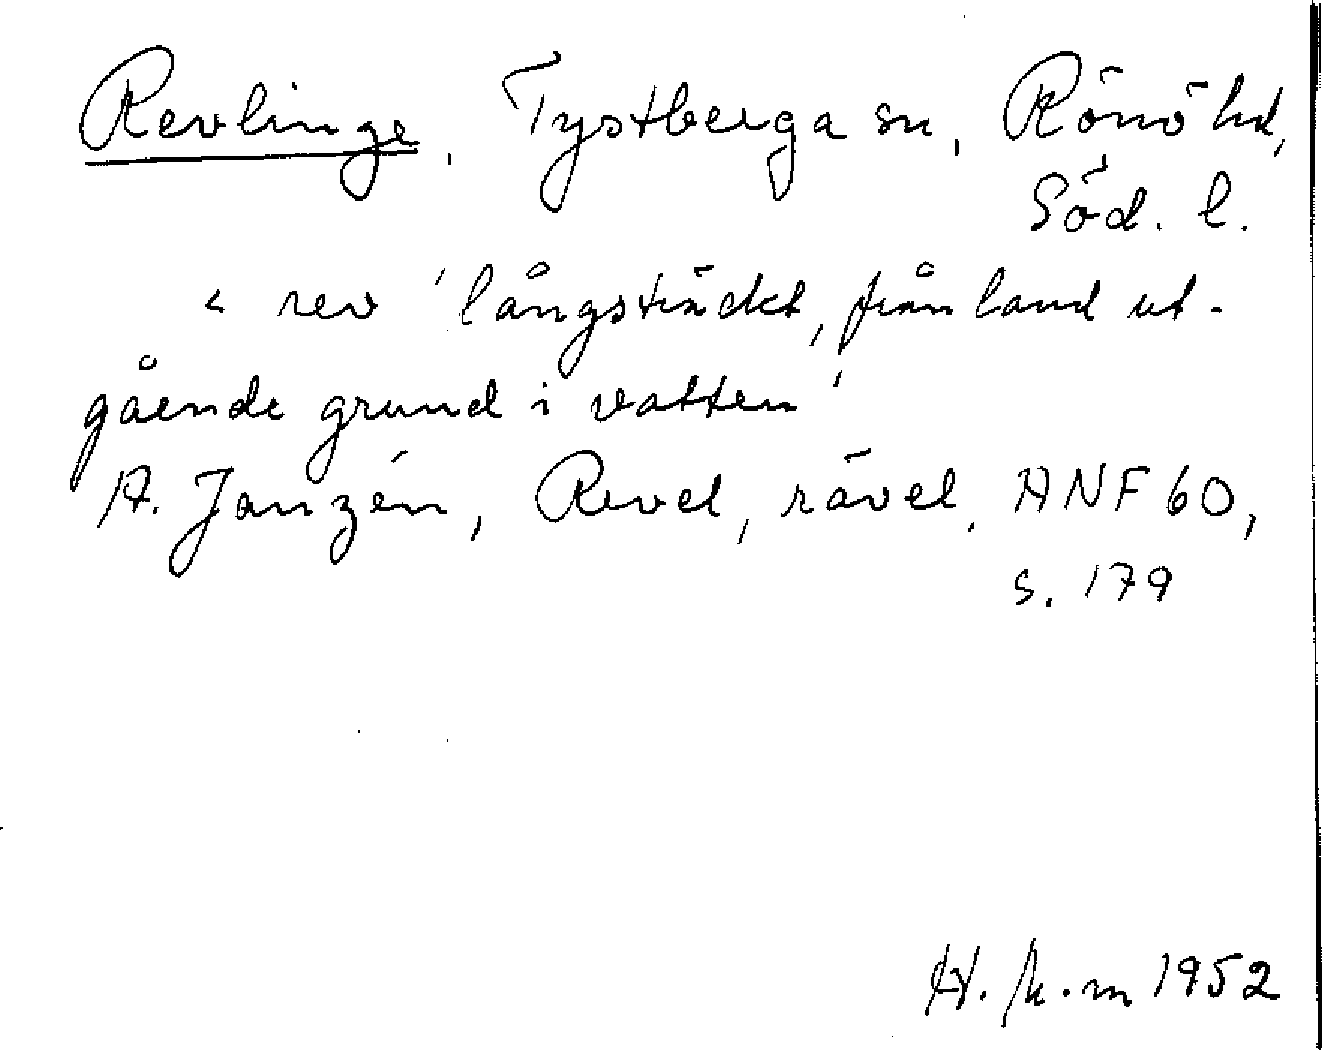 Revlinge, Tystberga sn, Rönö hd,
Söd. l.
< rev 'långsträckt, från land ut-
gående grund i vatten'
A. Janzén, Revel, rävel, ANF 60,
s. 179
1952